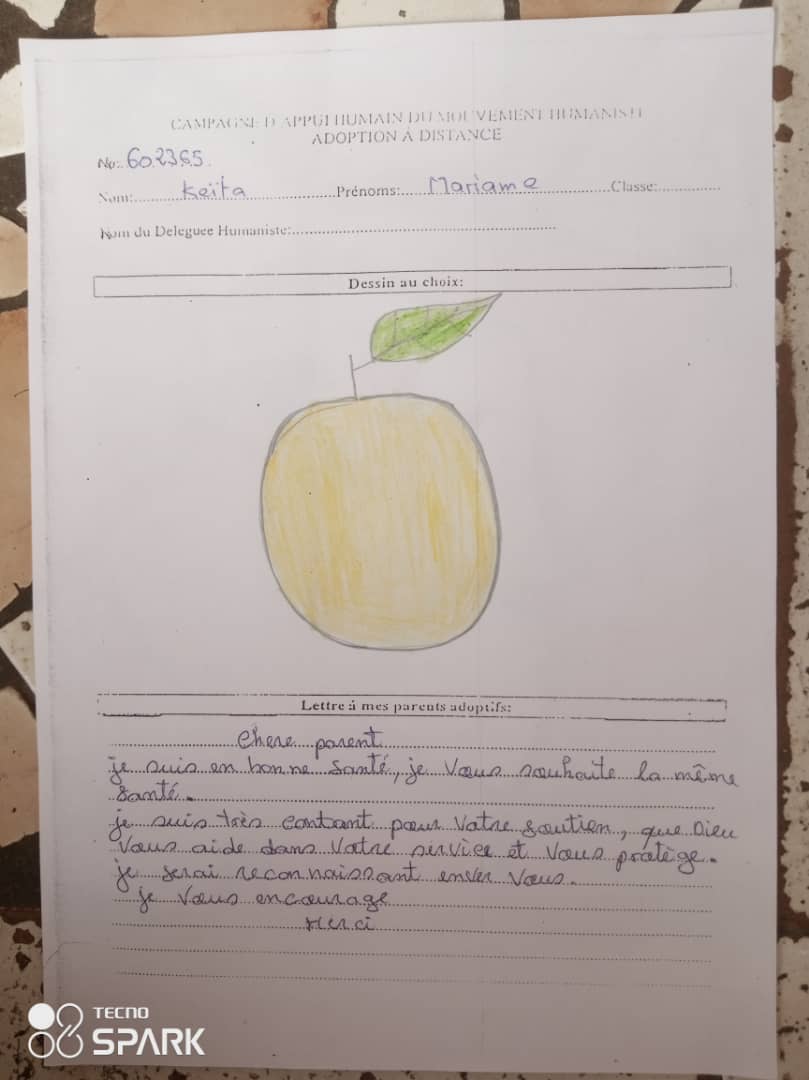 CAMPAGNE D'APPUI HUMAIN DU MOUVEMENT HUMANISTE
ADOPTION À DISTANCE
No:. 602365.
Nom:........Keïta..................Prénoms:.....Mariame............Classe:..............
Nom du Deleguee Humaniste:............................................................
Dessin au choix:
Lettre à mes parents adoptifs:
Chere parent
je suis en bonne santé, je vous souhaite la même
santé.
je suis très contant pour votre soutien, que Dieu
vous aide dans votre service et vous protège.
je serai reconnaissant enver vous.
je vous encourage
Merci
TECNO
SPARK